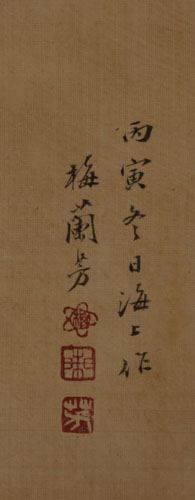 丙寅冬日海上作
梅蘭芳